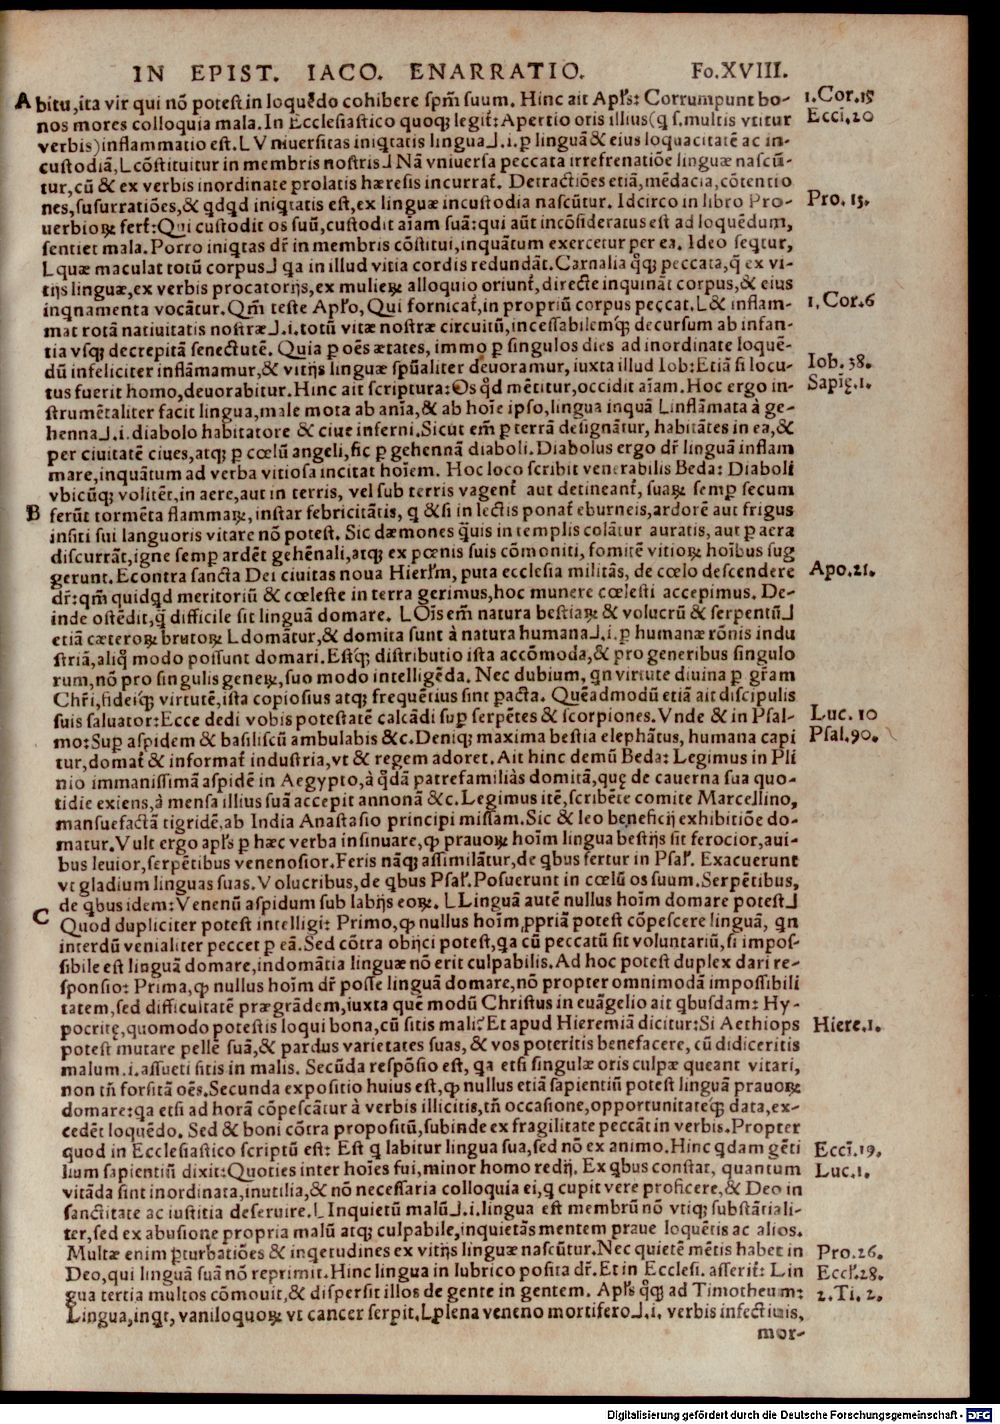 IN EPIST. IACO. ENARRATIO. Fo.XVIII.
A bitu, ita vir qui nō potest in loquēdo cohibere spm̄ suum. Hinc ait Apl̄s: Corrumpunt bo- 1.Cor.15
nos mores colloquia mala. In Ecclesiastico quoqꝫ legit̄: Apertio oris illius (q̄ s. multis vtitur Ecci.20
verbis) inflammatio est. L Vniuersitas iniqtatis lingua ⅃ .i. ꝑ linguā & eius loquacitatē ac in-
custodiā, L cōstituitur in membris nostris ⅃ Nā vniuersa peccata irrefrenatiōe linguæ nascū-
tur, cū & ex verbis inordinate prolatis hæresis incurrat̄. Detractiōes etiā, mēdacia, cōtentio
nes, susurratiōes, & qdqd iniqtatis est, ex linguæ incustodia nascūtur. Idcirco in libro Pro- Pro. 13.
uerbioꝝ fert̄: Qui custodit os suū, custodit aīam suā: qui aūt incōsideratus est ad loquēdum,
sentiet mala. Porro iniqtas dr̄ in membris cōstitui, inquātum exercetur per ea. Ideo seqtur,
L quæ maculat totū corpus ⅃ qa in illud vitia cordis redundāt. Carnalia q̄qꝫ peccata, q̄ ex vi-
tijs linguæ, ex verbis procatorijs, ex mulieꝝ alloquio oriunt̄, directe inquināt corpus, & eius
inqnamenta vocātur. Qm̄ teste Apl̄o, Qui fornicat̄, in propriū corpus peccat. L & inflam- 1, Cor.6
mat rotā natiuitatis nostræ ⅃ .i. totū vitæ nostræ circuitū, incessabilemqꝫ decursum ab infan-
tia vsqꝫ decrepitā senectutē. Quia ꝑ oēs ætates, immo ꝑ singulos dies ad inordinate loquē-
dū infeliciter inflāmamur, & vitijs linguæ spūaliter deuoramur, iuxta illud Iob: Etiā si locu- Iob. 38.
tus fuerit homo, deuorabitur. Hinc ait scriptura: Os qd̄ mētitur, occidit aīam. Hoc ergo in- Sapię.1.
strumētaliter facit lingua, male mota ab anīa, & ab hoīe ipso, lingua inquā L inflāmata à ge-
henna ⅃ .i. diabolo habitatore & ciue inferni. Sicut em̄ ꝑ terrā designātur, habitātes in ea, &
per ciuitatē ciues, atqꝫ ꝑ cœlū angeli, sic ꝑ gehennā diaboli. Diabolus ergo dr̄ linguā inflam
mare, inquātum ad verba vitiosa incitat hoīem. Hoc loco scribit venerabilis Beda: Diaboli
vbicūqꝫ volitēt, in aere, aut in terris, vel sub terris vagent̄ aut detineant̄, suaꝝ semꝑ secum
B ferūt tormēta flammaꝝ, instar febricitātis, q & si in lectis ponat̄ eburneis, ardorē aut frigus
insiti sui languoris vitare nō potest. Sic dæmones q̄uis in templis colātur auratis, aut ꝑ aera
discurrāt, igne semꝑ ardēt gehēnali, atqꝫ ex pœnis suis cōmoniti, fomitē vitioꝝ hoībus sug
gerunt. Econtra sancta Dei ciuitas noua Hierl̄m, puta ecclesia militās, de cœlo descendere Apo.21.
dr̄: qm̄ quidqd meritoriū & cœleste in terra gerimus, hoc munere cœlesti accepimus. De-
inde ostēdit, q̄ difficile sit linguā domare. L Oīs em̄ natura bestiaꝝ & volucrū & serpentū ⅃
etiā cæteroꝝ brutoꝝ L domātur, & domita sunt à natura humana ⅃ .i. ꝑ humanæ rōnis indu
striā, aliq̄ modo possunt domari. Estqꝫ distributio ista accōmoda, & pro generibus singulo
rum, nō pro singulis geneꝝ, suo modo intelligēda. Nec dubium, qn virtute diuina ꝑ gr̄am
Chr̄i, fideiqꝫ virtutē, ista copiosius atqꝫ frequētius sint ꝑacta. Quēadmodū etiā ait discipulis
suis saluator: Ecce dedi vobis potestatē calcādi suꝑ serpētes & scorpiones. Vnde & in Psal- Luc. 10
mo: Suꝑ aspidem & basiliscū ambulabis &c. Deniqꝫ maxima bestia elephātus, humana capi Psal.90.
tur, domat̄ & informat̄ industria, vt & regem adoret. Ait hinc demū Beda: Legimus in Pli
nio immanissimā aspidē in Aegypto, à qdā patrefamiliàs domitā, quę de cauerna sua quo-
tidie exiens, à mensa illius suā accepit annonā &c. Legimus itē, scribēte comite Marcellino,
mansuefactā tigridē, ab India Anastasio principi missam. Sic & leo beneficij exhibitiōe do-
matur. Vult ergo apl̄s ꝑ hæc verba insinuare, ꝙ prauoꝝ hoīm lingua bestijs sit ferocior, aui-
bus leuior, serpētibus venenosior. Feris nāqꝫ assimilātur, de qbus fertur in Psal̄. Exacuerunt
vt gladium linguas suas. Volucribus, de qbus Psal̄. Posuerunt in cœlū os suum. Serpētibus,
de qbus idem: Venenū aspidum sub labijs eoꝝ. L Linguā autē nullus hoīm domare potest ⅃
C Quod dupliciter potest intelligi: Primo, ꝙ nullus hoīm ꝓpriā potest cōpescere linguā, qn
interdū venialiter peccet ꝑ eā. Sed cōtra obijci potest, qa cū peccatū sit voluntariū, si impos-
sibile est linguā domare, indomātia linguæ nō erit culpabilis. Ad hoc potest duplex dari re-
sponsio: Prima, ꝙ nullus hoīm dr̄ posse linguā domare, nō propter omnimodā impossibili
tatem, sed difficultatē prægrādem, iuxta quē modū Christus in euāgelio ait qbusdam: Hy-
pocritę, quomodo potestis loqui bona, cū sitis mali? Et apud Hieremiā dicitur: Si Aethiops Hiere.1.
potest mutare pellē suā, & pardus varietates suas, & vos poteritis benefacere, cū didiceritis
malum .i. assueti sitis in malis. Secūda respōsio est, qa etsi singulæ oris culpæ queant vitari,
non tn̄ forsitā oēs. Secunda expositio huius est, ꝙ nullus etiā sapientiū potest linguā prauoꝝ
domare: qa etsi ad horā cōpescātur à verbis illicitis, tn̄ occasione, opportunitateqꝫ data, ex-
cedēt loquēdo. Sed & boni cōtra propositū, subinde ex fragilitate peccāt in verbis. Propter
quod in Ecclesiastico scriptū est: Est q labitur lingua sua, sed nō ex animo. Hinc qdam gēti Eccī.19.
lium sapientiū dixit: Quoties inter hoīes fui, minor homo redij. Ex qbus constat, quantum Luc.1.
vitāda sint inordinata, inutilia, & nō necessaria colloquia ei, q cupit vere proficere, & Deo in
sanctitate ac iustitia deseruire. L Inquietū malū ⅃ .i. lingua est membrū nō vtiqꝫ substātiali-
ter, sed ex abusione propria malū atqꝫ culpabile, inquietās mentem praue loquētis ac alios.
Multæ enim ꝑturbatiōes & inqetudines ex vitijs linguæ nascūtur. Nec quietē mētis habet in Pro.26.
Deo, qui linguā suā nō reprimit. Hinc lingua in lubrico posita dr̄. Et in Ecclesi. asserit̄: Lin Eccl̄.28.
gua tertia multos cōmouit, & dispersit illos de gente in gentem. Apl̄s q̄qꝫ ad Timotheum: 2.Ti. 2.
Lingua, inqt, vaniloquoꝝ vt cancer serpit. L plena veneno mortifero ⅃ .i. verbis infectiuis,
mor-
Digitalisierung gefördert durch die Deutsche Forschungsgemeinschaft - DFG